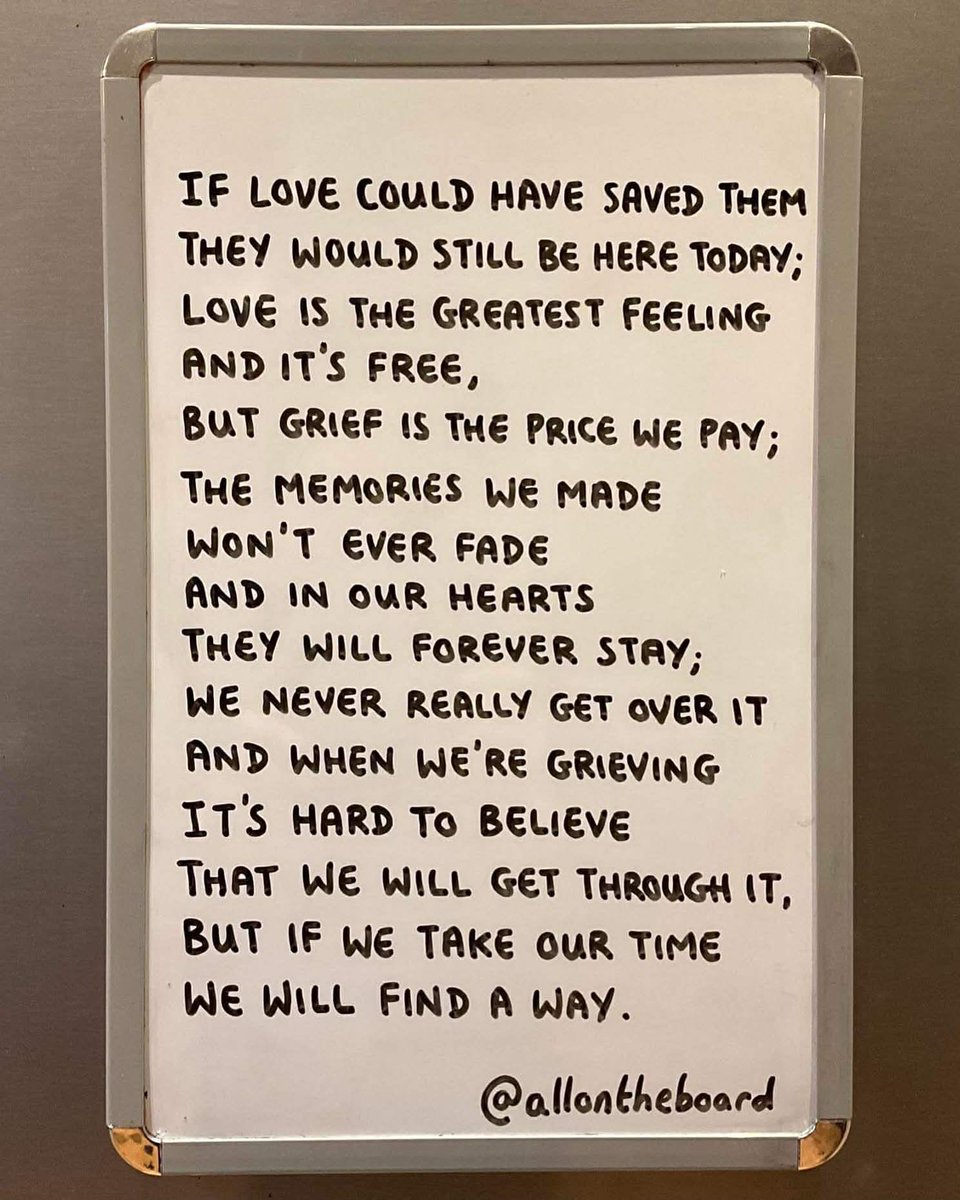 IF LOVE COULD HAVE SAVED THEM
THEY WOULD STILL BE HERE TODAY;
LOVE IS THE GREATEST FEELING
AND IT'S FREE,
BUT GRIEF IS THE PRICE WE PAY;
THE MEMORIES WE MADE
WON'T EVER FADE
AND IN OUR HEARTS
THEY WILL FOREVER STAY;
WE NEVER REALLY GET OVER IT
AND WHEN WE'RE GRIEVING
IT'S HARD TO BELIEVE
THAT WE WILL GET THROUGH IT,
BUT IF WE TAKE OUR TIME
WE WILL FIND A WAY.
@allontheboard